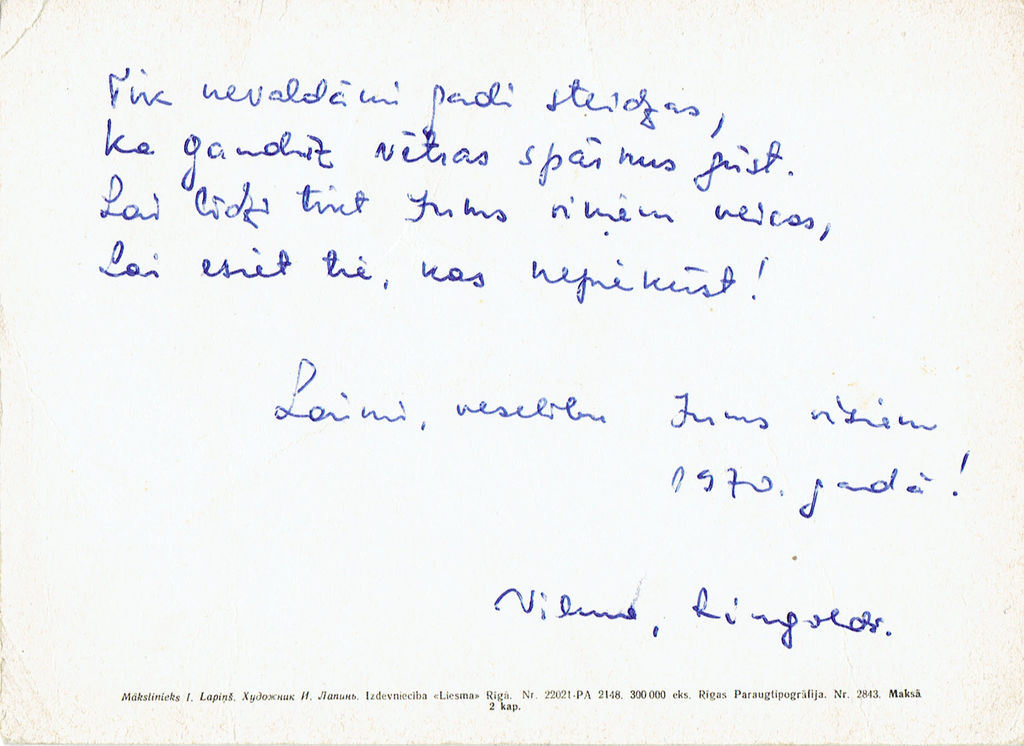 Tik nevaldāmi gadi steidzas,
ka gandrīz vētras spārnus gūst.
Lai līdzi tikt Jums viņiem veicas,
Lai esiet tie, kas nepiekūst!
Laimi, veselību Jums visiem
1970. gadā!
Vilma, Ringolds.
Mākslinieks I. Lapiņš. Художник И. Лапинь. Izdevniecība «Liesma» Rīgā. Nr. 22021-PA 2148. 300 000 eks. Rīgas Paraugtipogrāfija. Nr. 2843. Maksā
2 kap.